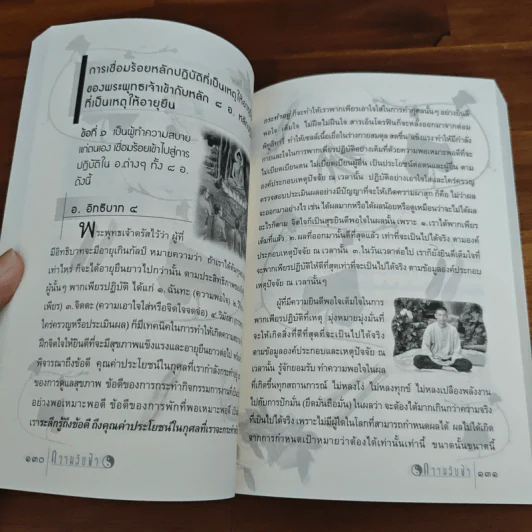 การเชื่อมร้อยหลักปฏิบัติที่เป็นเหตุให้
ของพระพุทธเจ้าเข้ากับหลัก ๘ อ.
ที่เป็นเหตุให้อายุยืน
ข้อที่ ๑ เป็นผู้ทำความสบาย
แก่ตนเอง เชื่อมร้อยเข้าไปสู่การ
ปฏิบัติใน อ.ต่างๆ ทั้ง ๘ อ.
ดังนี้
๑. อิทธิบาท ๔
พระพุทธเจ้าตรัสไว้ว่า ผู้ที่
มีอิทธิบาทจะมีอายุเกินกัลป์ หมายความว่า ถ้าเราได้
เท่าไหร่ ก็จะได้อายุยืนยาวไปกว่านั้น ตามประสิทธิภาพ
ผู้นั้นๆ พากเพียรได้ ได้แก่ ๑. ฉันทะ (ความพอใจ)
เพียร) ๓. จิตตะ (ความเอาใจใส่หรือจิตใจจดจ่อ)
ใคร่ครวญหรือประเมินผล) ก็มีเทคนิคในการทำให้เกิดความ
ฝึกจิตใจให้ยินดีที่จะมีสุขภาพแข็งแรงและอายุยืนยาว
พิจารณาถึงข้อดี คุณค่าประโยชน์ในกุศลที่เรากำลังกระทำ
ของการดูแลสุขภาพ ข้อดีของการกระทำกิจกรรมการงาน
อย่างพอเหมาะพอดี ข้อดีของการพักที่พอเหมาะพอดี
เราระลึกรู้ถึงข้อดี ถึงคุณค่าประโยชน์ในกุศลที่เราจะกระทำ
๑๓๐ ความลับฟ้า
กระทำอยู่ ก็จะทำให้เราพากเพียรเอาใจใส่ในการทำกุศลนั้นๆ อย่างยินดี
พอใจ เต็มใจ ไม่ฝืดไม่ฝืนใจ สารเอ็นโดรฟินก็จะหลั่งออกมาจากต่อม
พิทูอิทารี่ ทำให้เซลล์เนื้อเยื่อในร่างกายสมดุล สดชื่น แข็งแรง แต่ก็มีกำลัง
กายและใจในการพากเพียรปฏิบัติอย่างเต็มที่ด้วยความพอเหมาะพอดีที่จะ
ไม่เบียดเบียนตน ไม่เบียดเบียนผู้อื่น เป็นประโยชน์ต่อตนและผู้อื่น ตาม
องค์ประกอบเหตุปัจจัย ณ เวลานั้น ปฏิบัติอย่างเอาใจใส่และใคร่ครวญ
ตรวจสอบประเมินผลอย่างมีปัญญาที่จะทำให้เกิดความผาสุก ก็คือ ไม่ว่าผล
จะออกมาอย่างไร เช่น ได้ผลมากหรือได้ผลน้อยหรือดูเหมือนว่าจะไม่ได้ผล
อะไรก็ตาม จิตใจก็เป็นสุขยินดีพอใจในผลนั้น เพราะ ๑. เราได้พากเพียร
เต็มที่แล้ว ๒. ผลที่ออกมานั้นดีที่สุดแล้ว เท่าที่จะเป็นไปได้จริง ตามองค์
ประกอบและเหตุปัจจัย ณ เวลานั้น ๓. ในวันเวลาต่อไป เราก็ยังยินดีเต็มใจที่
จะพากเพียรปฏิบัติให้ดีที่สุดเท่าที่จะเป็นไปได้จริง ตามข้อมูลองค์ประกอบ
เหตุปัจจัย ณ เวลานั้น
ผู้ที่มีความยินดีพอใจเต็มใจในการ
พากเพียรปฏิบัติที่เหตุ มุ่งหมายมุ่งมั่นที่
จะให้เกิดสิ่งที่ดีที่สุดที่จะเป็นไปได้จริง
ตามข้อมูลองค์ประกอบและเหตุปัจจัย ณ
เวลานั้น รู้จักยอมรับ ทำความพอใจในผล
ที่เกิดขึ้นทุกสถานการณ์ ไม่หลงโง่ ไม่หลงทุกข์ ไม่หลงเปลืองพลังงาน
ไปกับการปักมั่น (ยึดมั่นถือมั่น) ในผลว่า จะต้องได้มากเกินกว่าความจริง
ที่จะเป็นไปได้จริง เพราะไม่มีผู้ใดในโลกที่สามารถกำหนดผลได้ ผลไม่ได้เกิด
จากการกำหนดเป้าหมายว่าต้องได้เท่านั้นเท่านี้ ขนาดนั้นขนาดนี้
ความลับฟ้า ๑๓๑